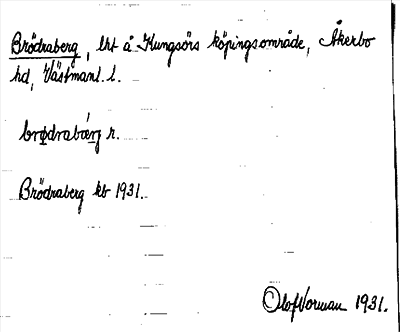 Brödraberg, lht å Kungsörs köpingsområde, Åkerbo
hd, Västmanl. l.
brødrabærj r.
Brödraberg kb 1931.
Olof Norman 1931.